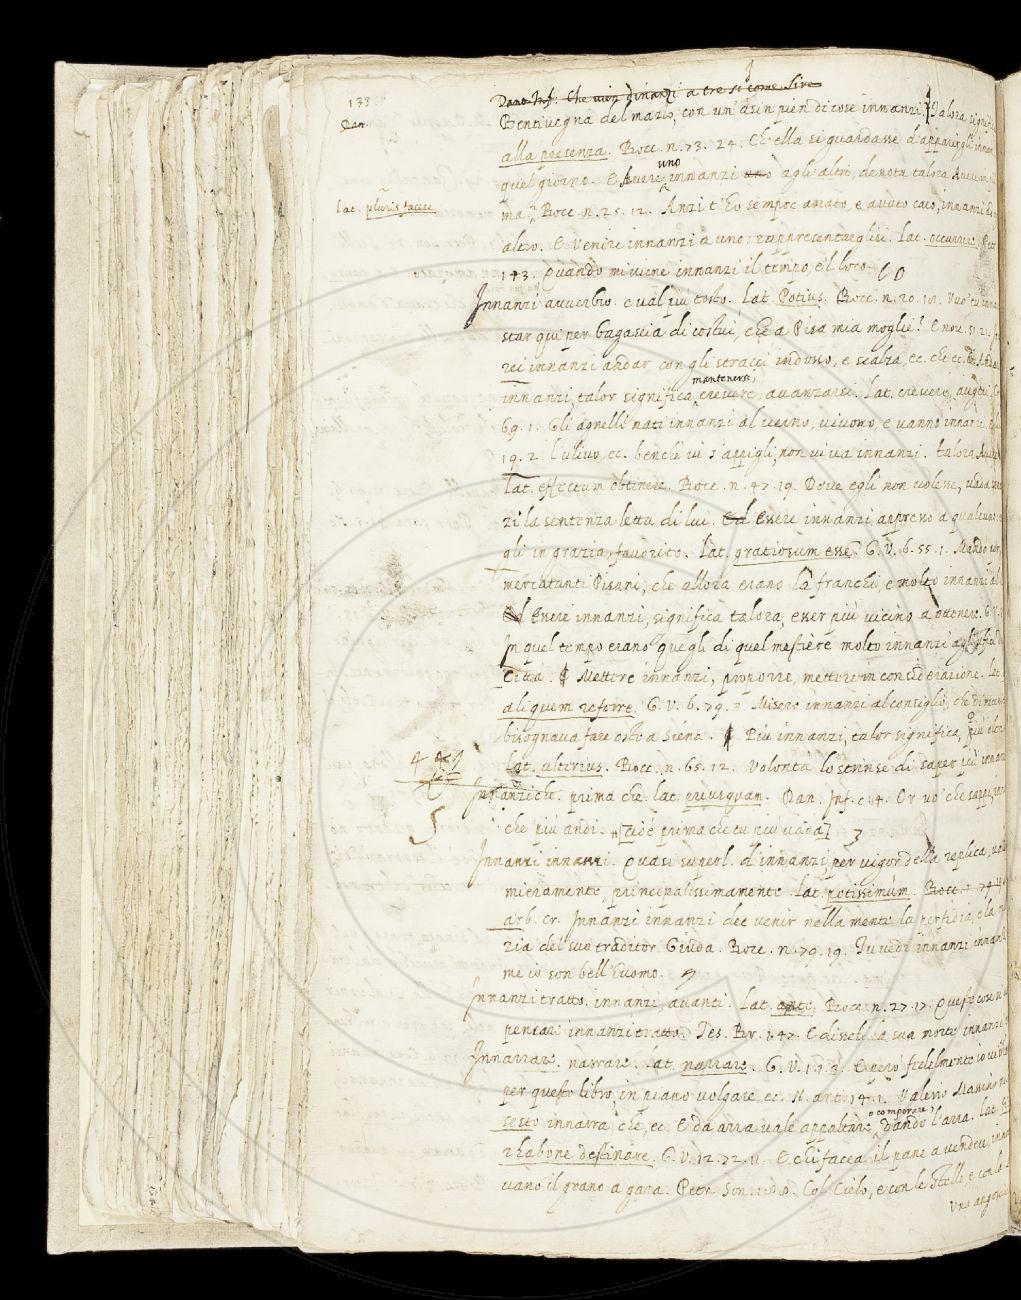 133
Dan.
Dant. Inf. Che vien dinanzi a tre si come sire
Bentivegna del mazo, con un'asin pien di cose innanzi. Talora signifi
alla presenza. Bocc. n. 73. 24. Ch'ella si guardasse d'apparirgli innan
quel giorno. E Avere innanzi uno agli altri, denota talora Aver
Lat. pluris facere
Bocc. n. 25. 12. Anzi t'ho sempre amato, e avuto caro, innanzi
altro. E Venire innanzi a uno: rappresentarglisi. Lat. occurrere. Petr
143. Quando mi viene innanzi il tempo, e'l loco.
Innanzi avverbio. e val più tosto. Lat. Potius. Bocc. n. 20. Vuo' tu
star qui per bagascia di costui, che a Pisa mia moglie? E nov.
rei innanzi andar con gli stracci indosso, e scalza, ec. che ec.
mantenersi,
innanzi, talor significa, crescere, avanzarsi. Lat. crescere, augeri.
69. 1. Gli agnelli nati innanzi al verno, vivono, e vanno innanzi.
19. 2. L'ulivo, ec. benchè vi s'appigli, non vi va innanzi. talora
Lat. effectum obtinere. Bocc. n. 47. 19. Dove egli non volesse, vada
zi la sentenza letta di lui. Ed Essere innanzi appresso a qualcuno,
gli in grazia, favorito. Lat. gratiosum esse. G. V. 6. 55. 1. Mandò
mercatanti Pisani, che allora erano là franchi, e molto innanzi al
Ed Essere innanzi, significa talora, esser più vicino a ottenere. G. V.
In quel tempo erano quegli di quel mestiere molto innanzi
Città. Mettere innanzi, proporre, mettere in considerazione. Lat.
aliquem referre. G. V. 6. 79. 2. Misero innanzi al consiglio, che
bisognava fare oste a Siena. Più innanzi, talor significa, più oltre
Lat. ulterius. Bocc. n. 65. 12. Volontà lo strinse di saper più innan
Innanzi che. prima che. Lat. priusquam. Dan. Inf. c. 4. Or vo' che sappi,
che più andi. [cioè prima che tu più vada]
Innanzi innanzi. Quasi superl. d'innanzi, per vigor della replica,
mieramente principalissimamente. Lat. potissimùm. Bocc.
arb. cr. Innanzi innanzi dee venir nella mente la perfidia, e la
zia del suo traditor Giuda. Bocc. n. 79. 19. Tu vedi innanzi innanzi
me io son bell'huomo.
Innanzi tratto. innanzi, avanti. Lat. ante. Bocc. n. 27. 17. Queste cose si
pensar innanzi tratto. Tes. Br. 1. 47. E dissela sua morte innanzi
Innarrare. narrare. Lat. narrare. G. V. 1. 1. 3. E però fedelmente io
per questo libro, in piano volgare, ec. N. ant. 14. 1. Valerio Massimo
sesto innarra che, ec. E da arra vale appaltare, o comperare, dando l'arra. Lat.
rhabone destinare. G. V. 12. 72. 11. E chi facea il pane a vendere,
vano il grano a gara. Petr. Son. Col Cielo, e con le Stelle, e con le
una